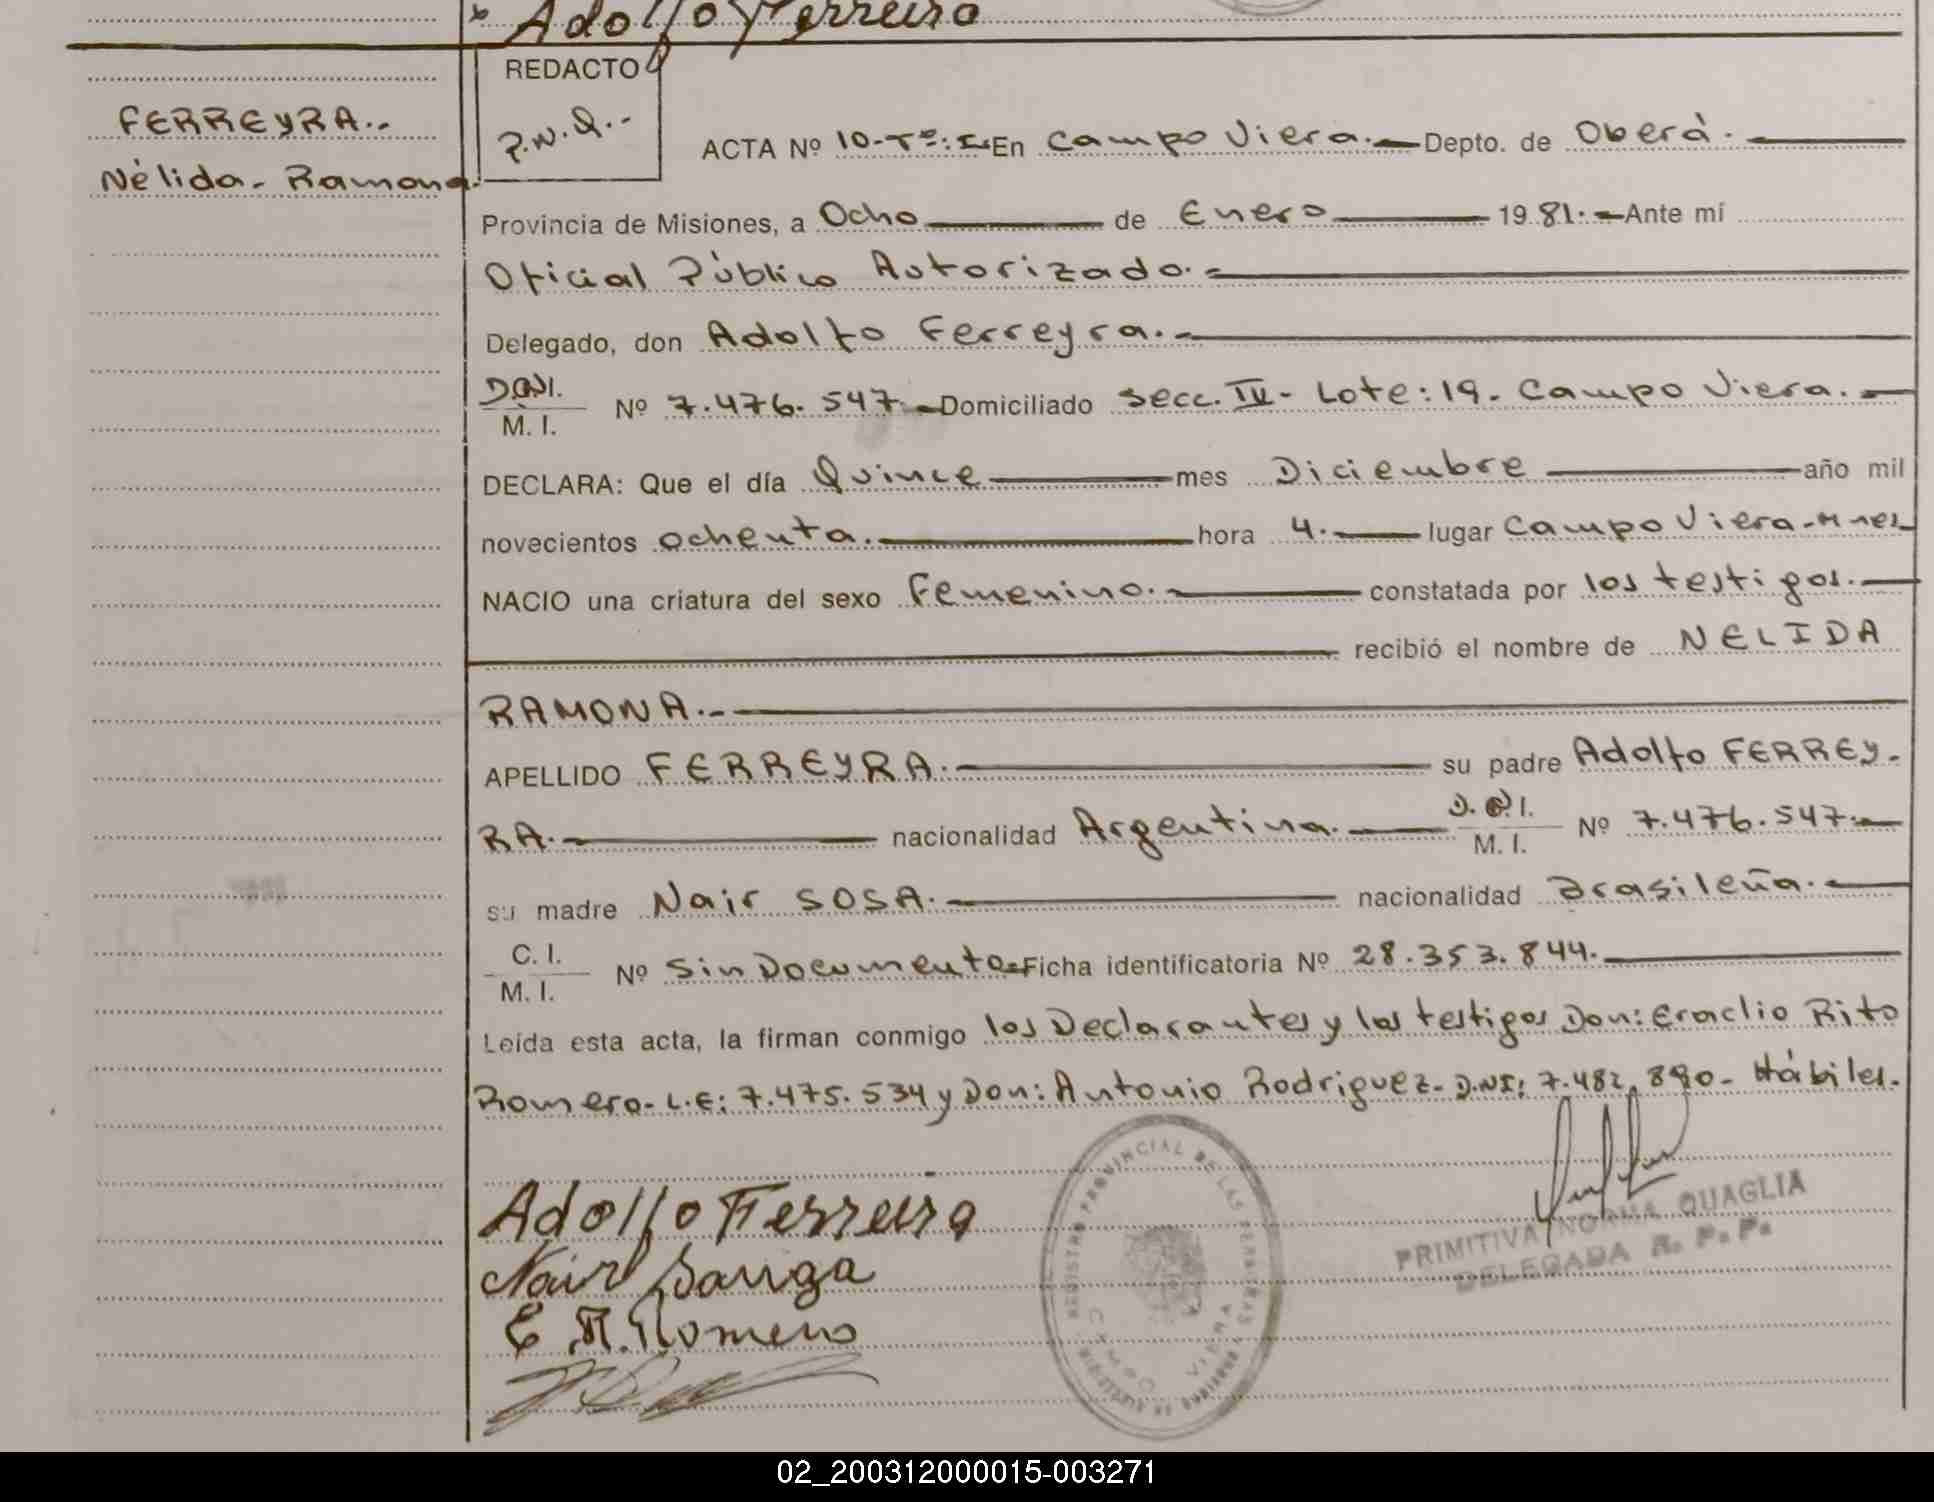 Adolfo Ferreira
REDACTO
FERREYRA.-
P.N.Q.-
Nélida- Ramona.
ACTA Nº 10-Tº:I-En Campo Viera.- Depto. de Oberá.
Provincia de Misiones, a Ocho de Enero 1981.- Ante mí
Oficial Público Autorizado.-
Delegado, don Adolfo Ferreyra.-
D.N.I.
M. I.
Nº 7.476.547.- Domiciliado Secc. IV- Lote: 19. Campo Viera.-
DECLARA: Que el día Quince mes Diciembre año mil
novecientos ochenta. hora 4. lugar Campo Viera-Mnes
NACIO una criatura del sexo Femenino.- constatada por los testigos.-
recibió el nombre de NELIDA
RAMONA.-
APELLIDO FERREYRA.- su padre Adolfo FERREY-
RA.- nacionalidad Argentina.- D.N.I.
M. I.
Nº 7.476.547.-
su madre Nair SOSA.- nacionalidad Brasileña.-
C. I.
M. I.
Nº Sin Documento- Ficha identificatoria Nº 28.353.844.
Leída esta acta, la firman conmigo los Declarantes y los testigos Don: Eraclio Rito
Romero- L.E: 7.475.534 y Don: Antonio Rodriguez- D.NI: 7.482.890- Hábiles.
Adolfo Ferreira
Nair
E R. Romero
REGISTRO PROVINCIAL DE LAS PERSONAS
CAMPO VIERA
PRIMITIVA NORMA QUAGLIA
DELEGADA R. P. P.
02_200312000015-003271